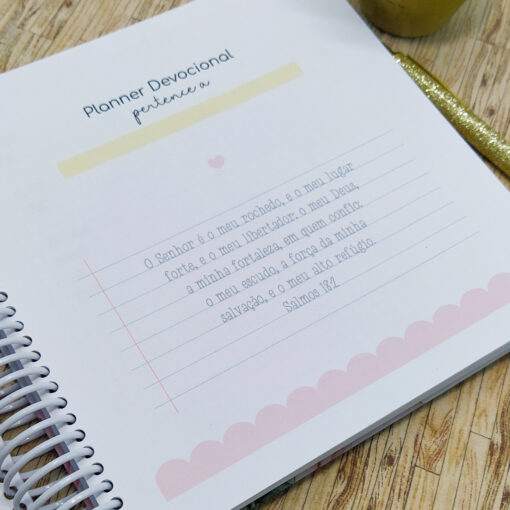 Planner Devocional
pertence a
O Senhor é o meu rochedo, e o meu lugar
forte, e o meu libertador; o meu Deus,
a minha fortaleza, em quem confio;
o meu escudo, a força da minha
salvação, e o meu alto refúgio.
Salmos 18:2